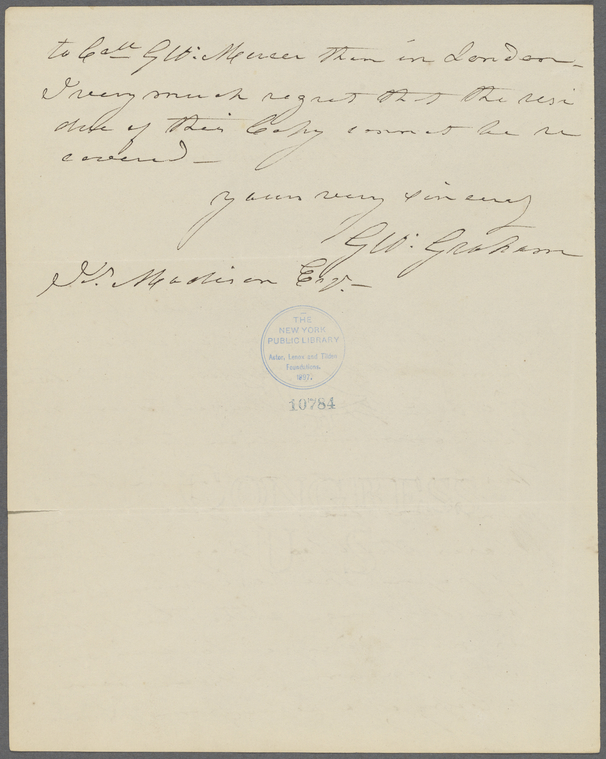 to Coll. GW: Mercer then in London_
I very much regret that the resi
due of this Copy cannot be re
covered_
yours very sincerely
GW: Graham
Js. Madison Esqr._
THE
NEW YORK
PUBLIC LIBRARY
Astor, Lenox and Tilden
Foundations.
1897.
10784